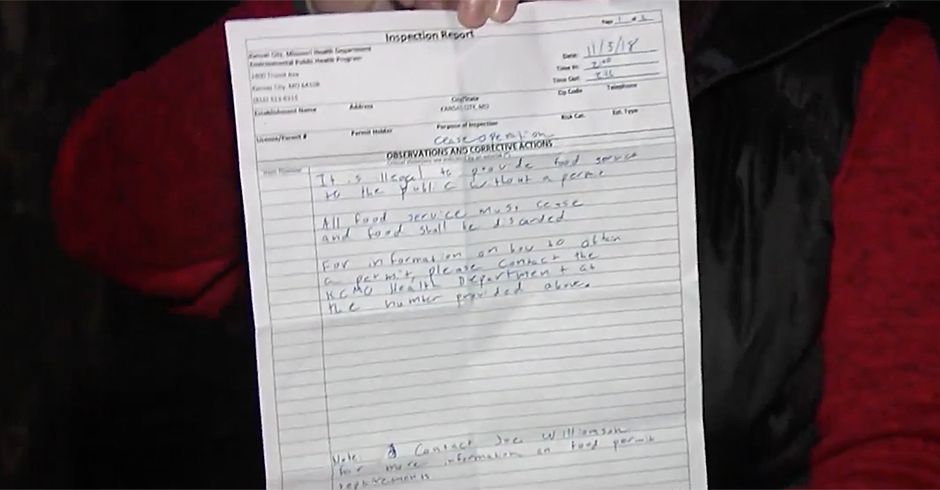 Page 1 of
Inspection Report
Kansas City, Missouri Health Department
Environmental Public Health Program
2400 Troost Ave
Kansas City, MO 64108
(816) 513-6315
Date: 11/5/18
Time In: 2:00
Time Out:
Establishment Name Address City/State Zip Code Telephone
KANSAS CITY, MO
License/Permit # Permit Holder Purpose of Inspection Risk Cat. Est. Type
Cease Operation
OBSERVATIONS AND CORRECTIVE ACTIONS
It is illegal to provide food service
to the public without a
All food service must cease
and food shall be discarded
For information on how to obtain
a permit, please contact the
KCMO Health Department at
the number provided above.
Note: Contact Joe Williamson
for more information on food permit
requirements